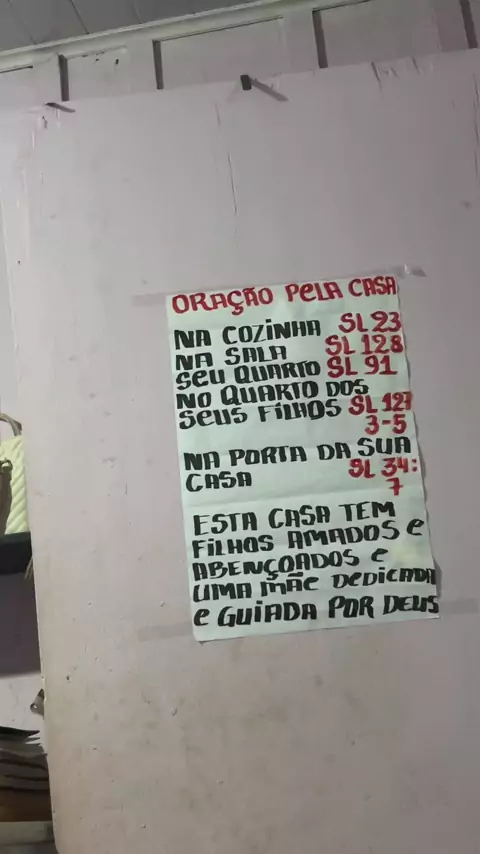 ORAÇÃO PELA CASA
NA COZINHA SL 23
NA SALA SL 128
SEU QUARTO SL 91
NO QUARTO DOS
SEUS FILHOS SL 127
3-5
NA PORTA DA SUA
CASA SL 34:
7
ESTA CASA TEM
FILHOS AMADOS E
ABENÇOADOS E
UMA MÃE DEDICADA
E GUIADA POR DEUS